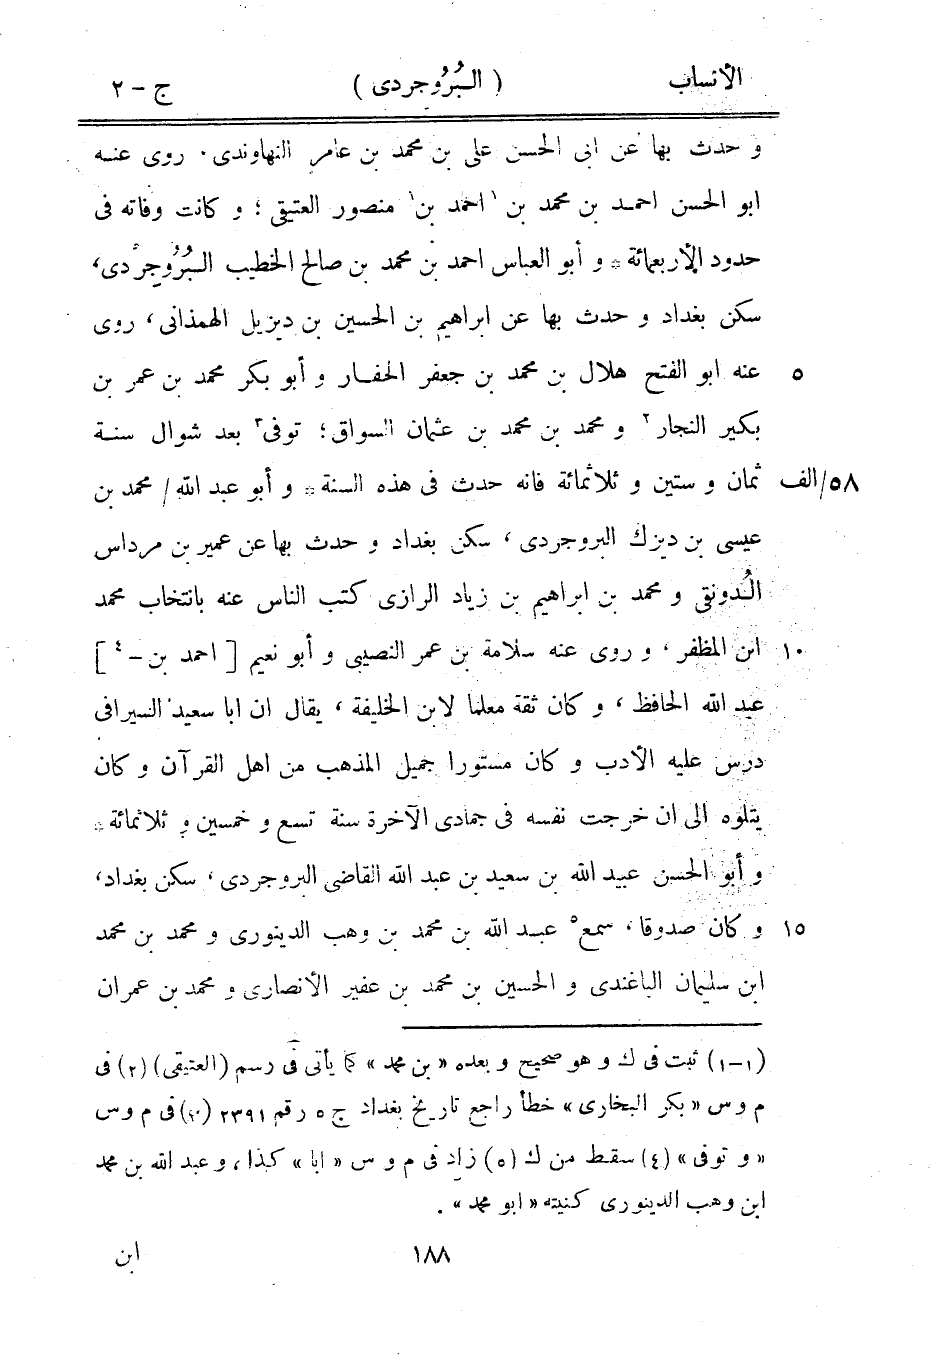 الأنساب ( البُرُوجردى ) ج - ٢
و حدث بها عن ابى الحسن على بن محمد بن عامر النهاوندى . روى عنه
ابو الحسن احمد بن محمد بن ١احمد بن١ منصور العتيقى ؛ و كانت وفاته فى
حدود الأربعمائة * و أبو العباس احمد بن محمد بن صالح الخطيب البُرُوجِرْدى،
سكن بغداد و حدث بها عن ابراهيم بن الحسين بن ديزيل الهمذانى ، روى
٥ عنه ابو الفتح هلال بن محمد بن جعفر الحفار و أبو بكر محمد بن عمر بن
بكير النجار٢ و محمد بن محمد بن عثمان السواق؛ توفى٣ بعد شوال سنة
٥٨/الف ثمان و ستين و ثلاثمائة فانه حدث فى هذه السنة * و أبو عبد الله / محمد بن
عيسى بن ديزك البروجردى ، سكن بغداد و حدث بها عن عمير بن مرداس
الدُونقى و محمد بن ابراهيم بن زياد الرازى كتب الناس عنه بانتخاب محمد
١٠ ابن المظفر ، و روى عنه سلامة بن عمر النصيبى و أبو نعيم [ احمد بن - ٤ ]
عبد الله الحافظ ، و كان ثقة معلما لابن الخليفة ، يقال ان ابا سعيد السيرافى
درس عليه الأدب و كان مستورا جميل المذهب من اهل القرآن و كان
يتلوه الى ان خرجت نفسه فى جمادى الآخرة سنة تسع و خمسين و ثلاثمائة *
و أبو الحسن عبيد الله بن سعيد بن عبد الله القاضى البروجردى ، سكن بغداد،
١٥ و كان صدوقا، سمع٥ عبد الله بن محمد بن وهب الدينورى و محمد بن محمد
ابن سليمان الباغندى و الحسين بن محمد بن عفير الأنصارى و محمد بن عمران
(١-١) ثبت فى ك و هو صحيح و بعده « بن محمد » كما يأتى فى رسم (العتيقى) (٢) فى
م و س « بكر البخارى » خطأ راجع تاريخ بغداد ج ٥ رقم ٢٣٩١ (٣) فى م و س
« و توفى » (٤) سقط من ك (٥) زاد فى م و س « ابا » كذا ، و عبد الله بن محمد
ابن وهب الدينورى كنيته « ابو محمد » .
١٨٨ ابن